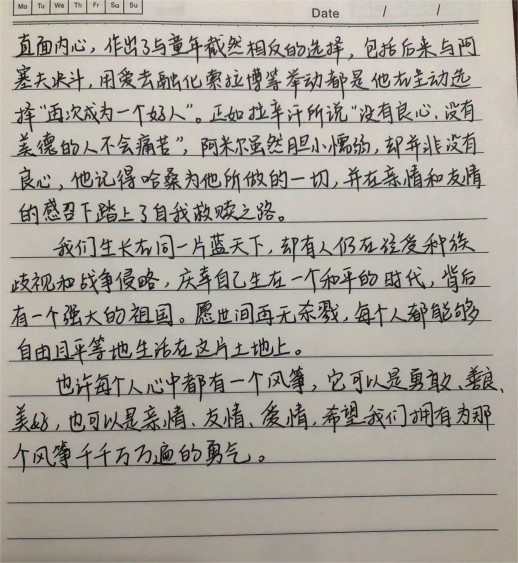 Mo Tu We Th Fr Sa Su
Date / /
直面内心，作出了与童年截然相反的选择，包括后来与阿
塞夫决斗，用爱去融化索拉博等举动都是他在主动选
择“再次成为一个好人”。正如拉辛汗所说“没有良心，没有
美德的人不会痛苦”，阿米尔虽然胆小懦弱，却并非没有
良心，他记得哈桑为他所做的一切，并在亲情和友情
的感召下踏上了自我救赎之路。
我们生长在同一片蓝天下，却有人仍在经受种族
歧视和战争侵略，庆幸自己生在一个和平的时代，背后
有一个强大的祖国。愿世间再无杀戮，每个人都能够
自由且平等地生活在这片土地上。
也许每个人心中都有一个风筝，它可以是勇敢、善良、
美好，也可以是亲情、友情、爱情，希望我们拥有为那
个风筝千千万万遍的勇气。